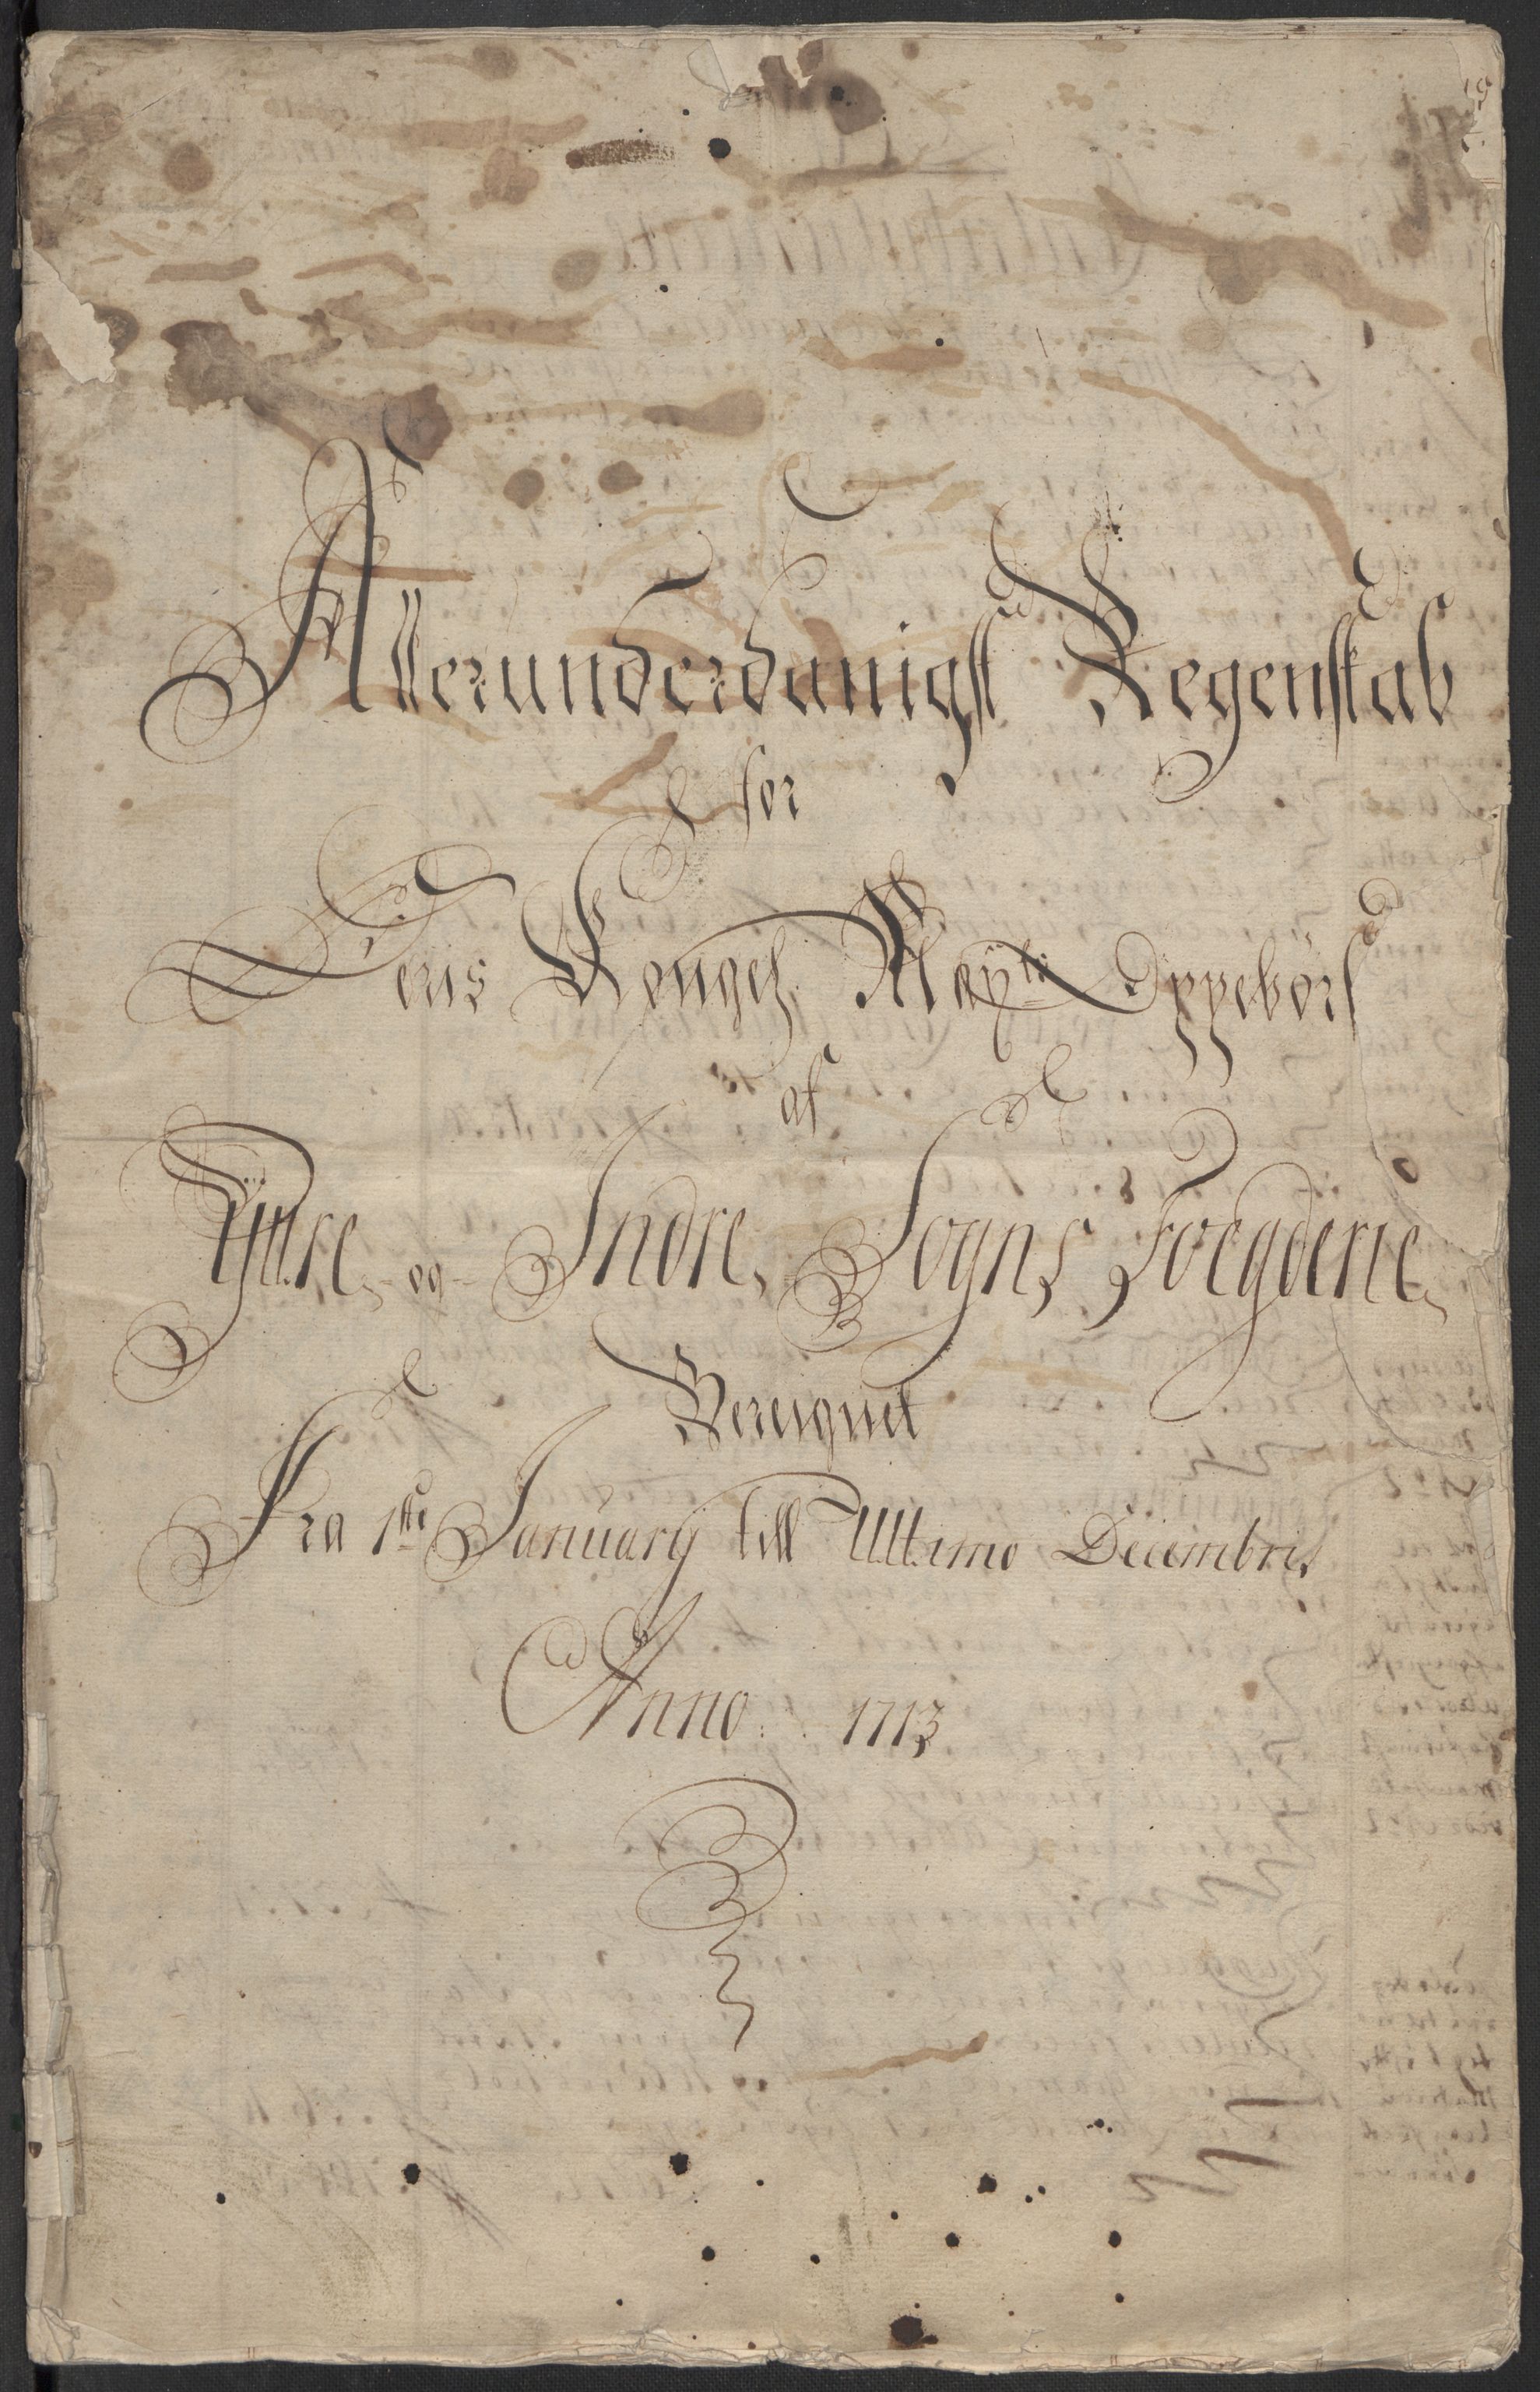 Allerunderdanigst Regenskab
for
Deris Kongel: Mayts Oppebørsel
af
Ytre, og Indre, Sogns Foegderie,
Bereignet
Fra 1ste January till Ultimo Decembris
Anno 1713